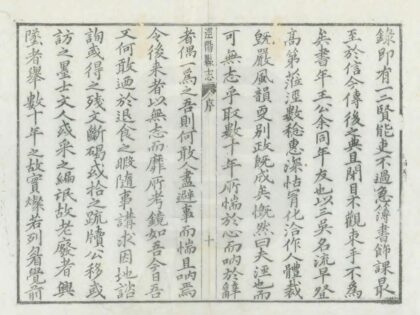 錄即有一二賢能更不過急簿書飾課最
至於信今傳後之典且閉目不觀束手不爲
矣書年王公余同年友也以三吳名流早登
高第蒞涇數稔惠深怙育化洽作人體裁
旣嚴風韻更别政旣成矣慨然曰夫涇也而
可無志乎取數十年所惴於心而吶於辭
者偶一爲之吾則何敢人盡避事而惴且吶焉
今後來者以無志而靡所考鏡如吾今日吾
又何敢迺於退食之暇隨事講求因地諮
詢或得之殘文斷碣或拾之疏牘公移或
訪之墨士文人或采之編氓故老廢者興
墜者舉數十年之故實燦若列眉覺前
縣志
序
十